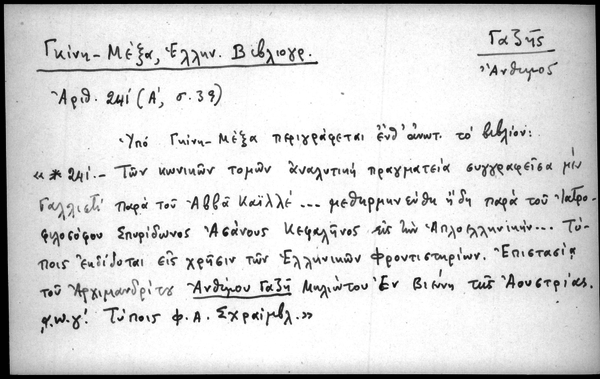 Γκίνη-Μέξα, Ἑλλην. Βιβλιογρ.
Γαζῆς
Ἄνθιμος
Ἀριθ. 241 (Α', σ. 39)
Ὑπό Γκίνη-Μέξα περιγράφεται ἐνθ' ἀνωτ. τό βιβλίον:
«*241.- Τῶν κωνικῶν τομῶν ἀναλυτική πραγματεία συγγραφεῖσα μέν
Γαλλιστί παρά τοῦ Ἀββᾶ Καϊλλέ... μεθηρμηνεύθη ἤδη παρά τοῦ Ἰατρο-
φιλοσόφου Σπυρίδωνος Ἀσάνους Κεφαλῆνος εἰς τήν Ἁπλοελληνικήν... Τύ-
ποις ἐκδίδοται εἰς χρῆσιν τῶν Ἑλληνικῶν φροντιστηρίων. Ἐπιστασίᾳ
τοῦ Ἀρχιμανδρίτου Ἀνθίμου Γαζῆ Μηλιώτου Ἐν Βιέννῃ τῆς Ἀουστρίας.
͵α.ω.γ! Τύποις Φ. Α. Σχραίμβλ.»